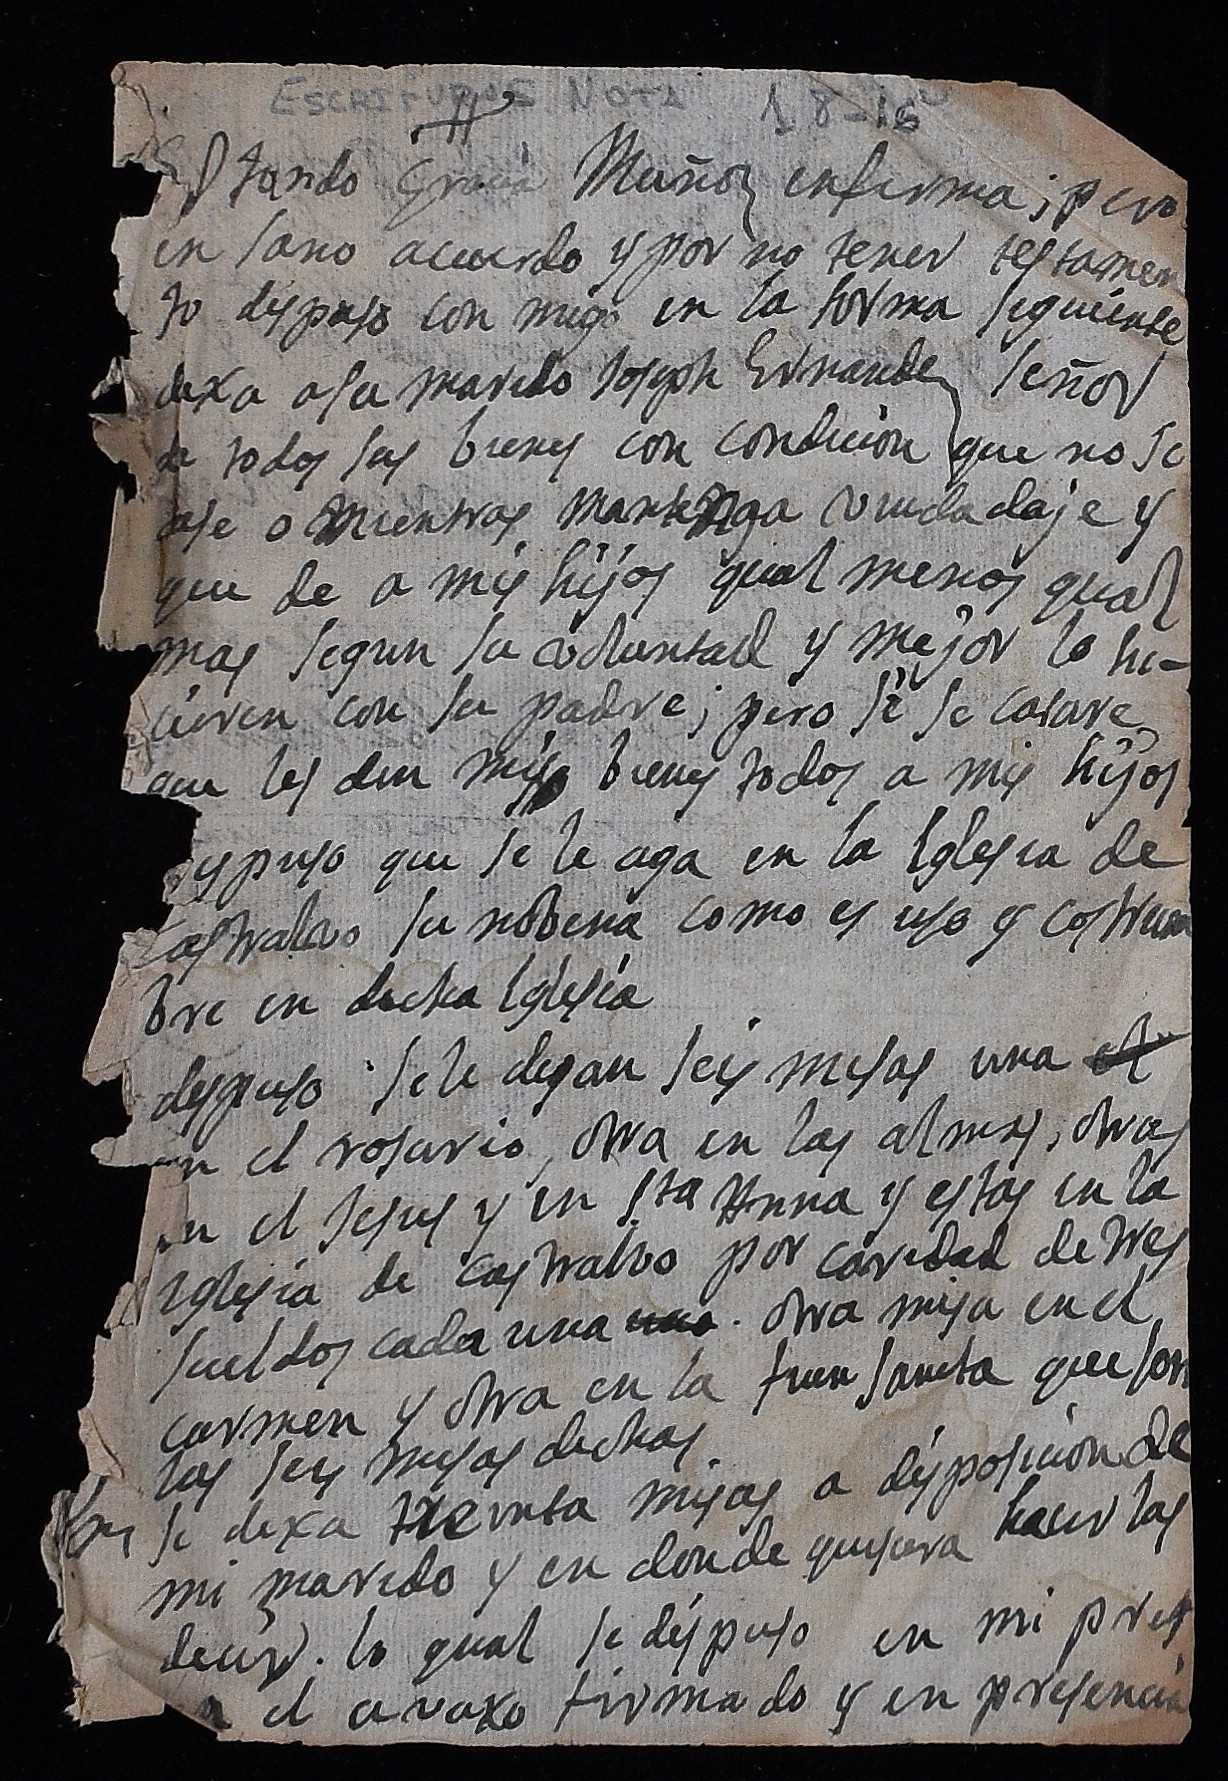 ESCRITURAS NOTA 18-16
Estando Gracia Muñoz enferma; pero
en sano acuerdo y por no tener testamen
to dispuso con migo en la forma siguiente
dexa a su marido Joseph Ernandez Señor
de todos sus bienes con condicion que no se
case o mientras mantenga viudadaje y
que de a mis hijos qual menos qual
mas segun su voluntad y mejor lo hi-
cieren con su padre; pero si se casare
que les den mis bienes todos a mis hijos
dispuso que se le aga en la Iglesia de
Castralvo su nobena como es uso y costum
bre en dicha Iglesia
dispuso se le digan seis misas una
en el rosario, otra en las almas, otras
en el Jesus y en Sta Anna y estas en la
Iglesia de Castralvo por caridad de tres
sueldos cada una. otra misa en el
carmen y otra en la fuen sancta que son
las seis misas dichas
Iten se dexa treinta misas a disposicion de
mi marido y en donde quisiera hacerlas
decir. lo qual se dispuso en mi pres
el avaxo firmado y en presencia